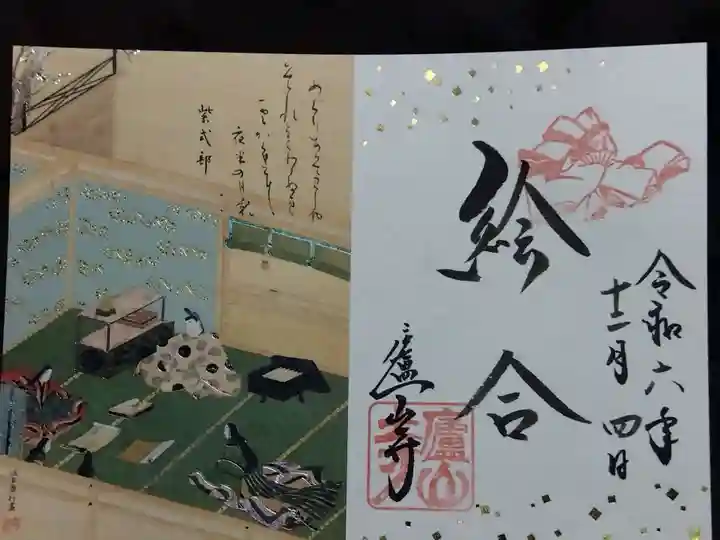 令和六年
十二月四日
絵合
廬山寺
廬山寺
めくりあひてみしや
それともわかぬまに
雲かくれにし
夜半の月哉
紫式部